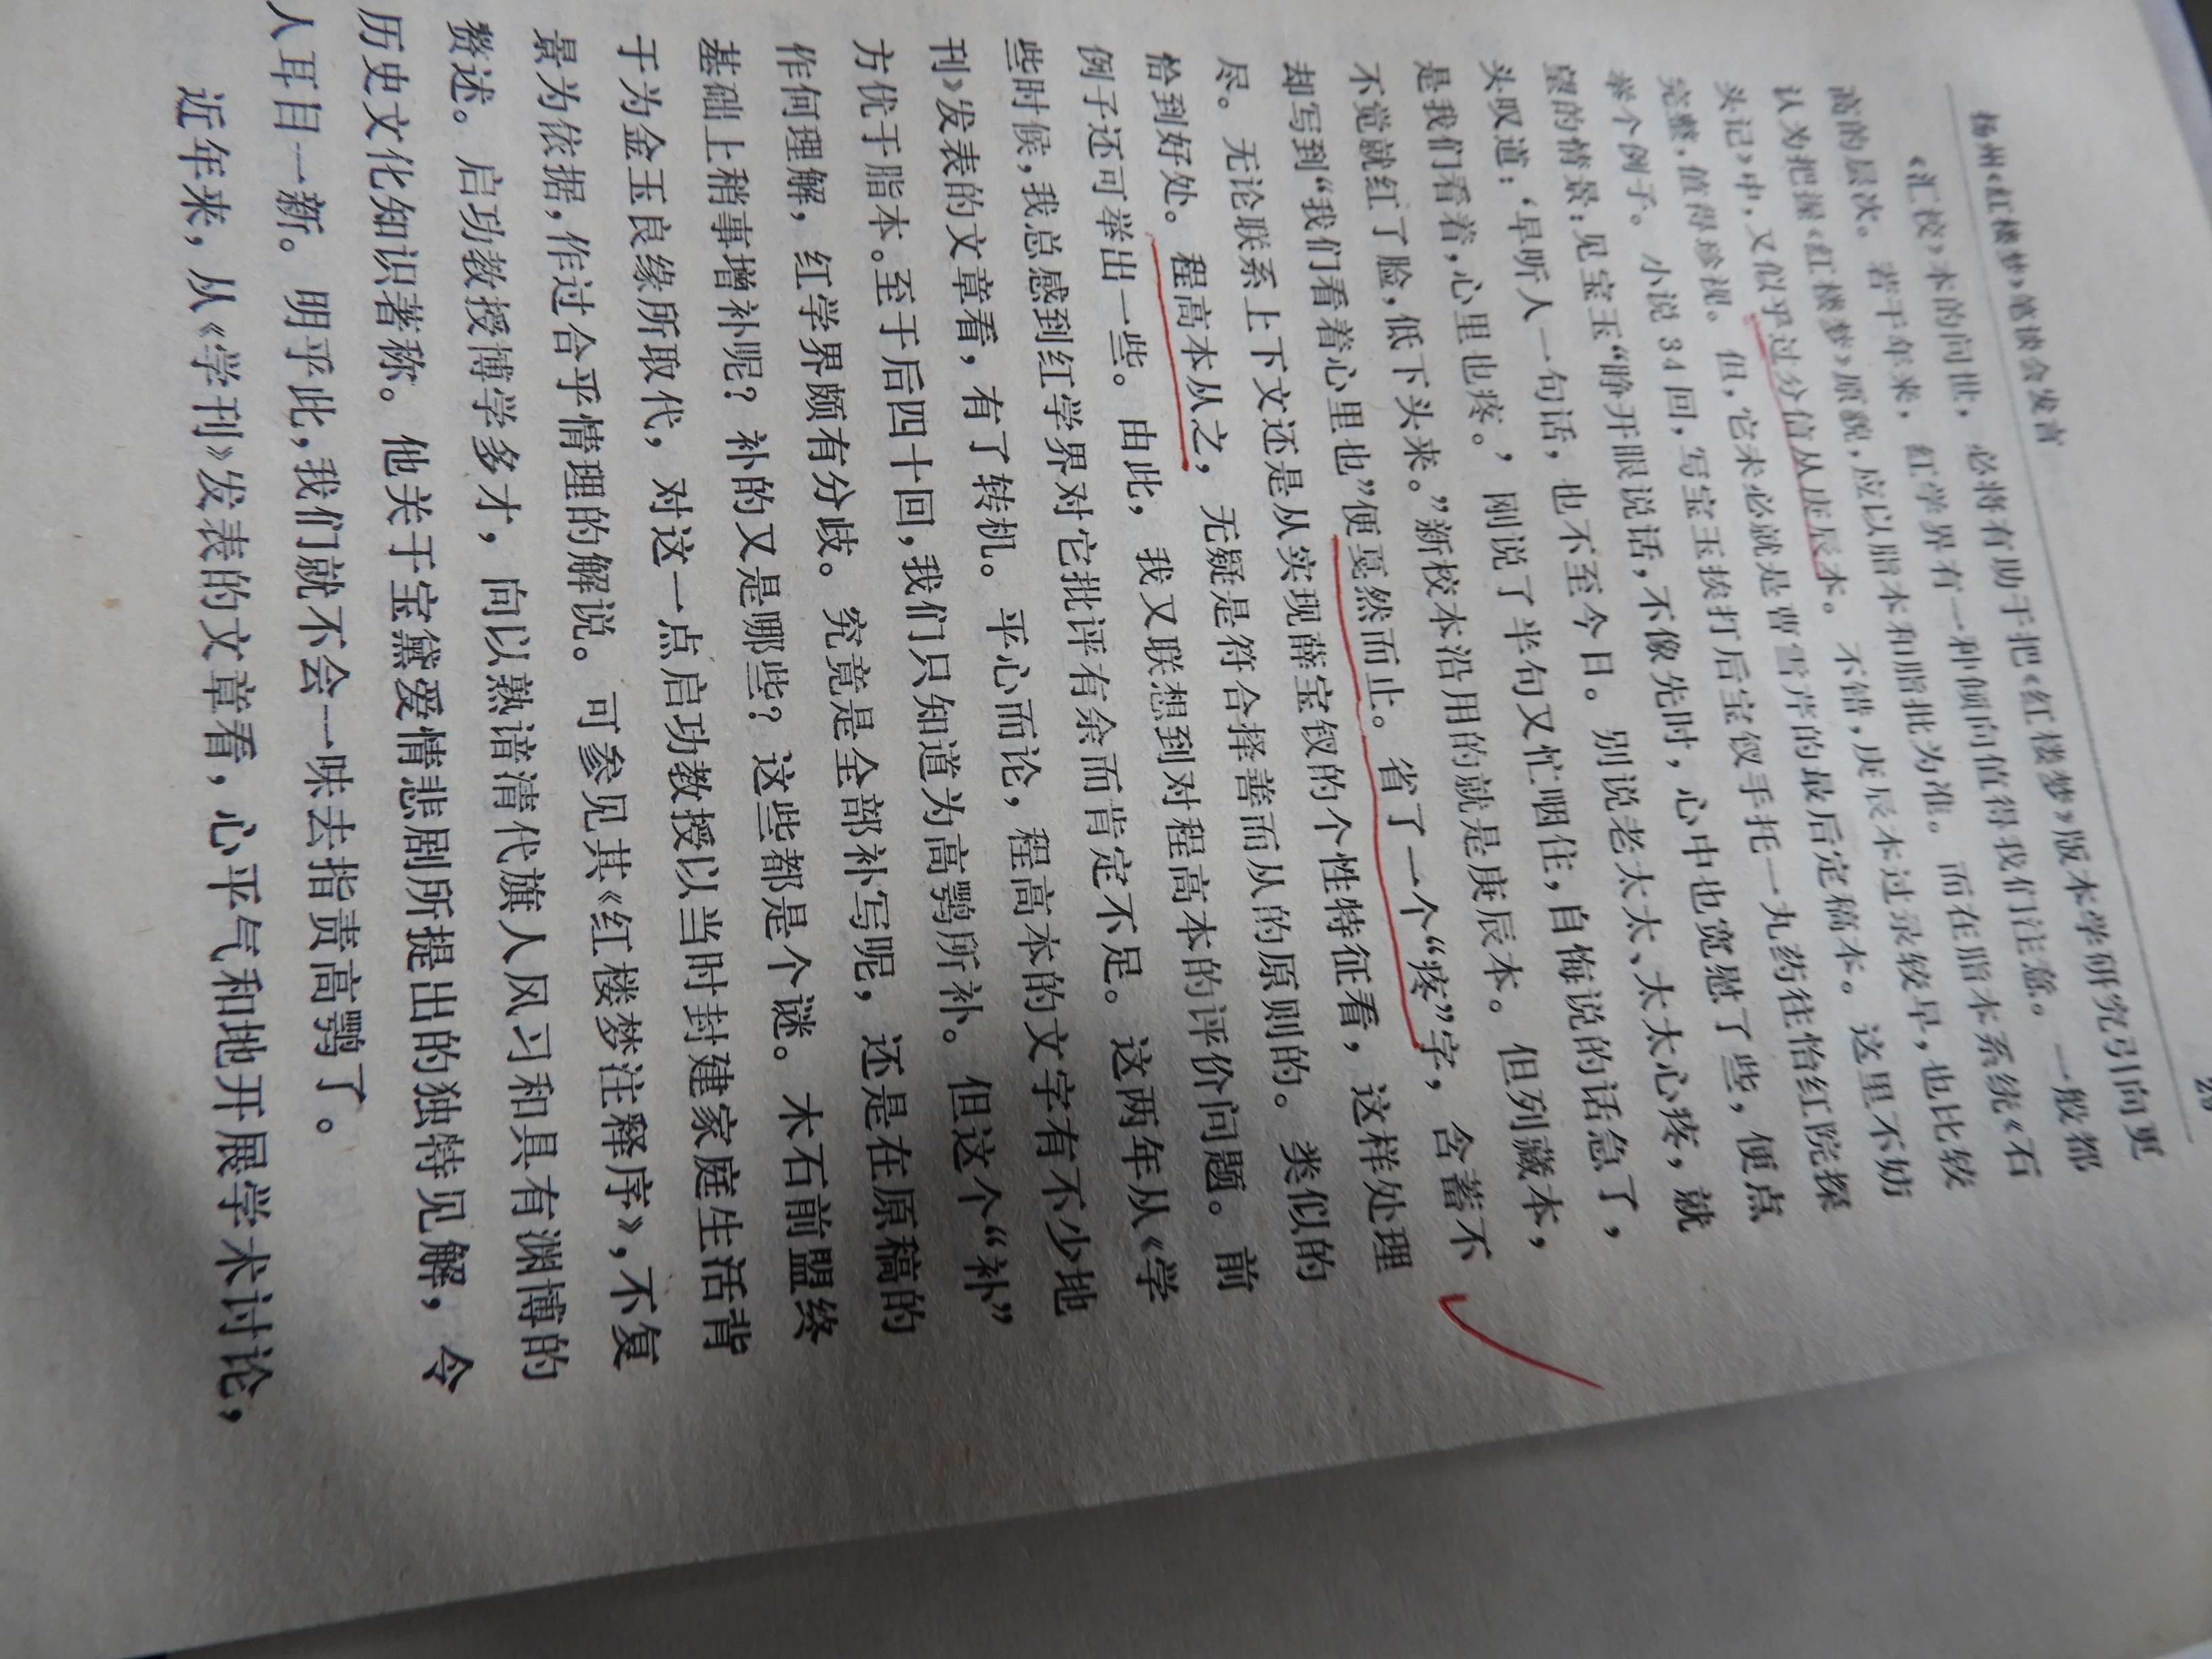 扬州《红楼梦》笔谈会发言
《汇校》本的问世，必将有助于把《红楼梦》版本学研究引向更
高的层次。若干年来，红学界有一种倾向值得我们注意。一般都
认为把握《红楼梦》原貌，应以脂本和脂批为准。而在脂本系统《石
头记》中，又似乎过分信从庚辰本。不错，庚辰本过录较早，也比较
完整，值得珍视。但，它未必就是曹雪芹的最后定稿本。这里不妨
举个例子。小说34回，写宝玉挨打后宝钗手托一丸药往怡红院探
望的情景：见宝玉“睁开眼说话，不像先时，心中也宽慰了些，便点
头叹道：‘早听人一句话，也不至今日。别说老太太、太太心疼，就
是我们看着，心里也疼。’刚说了半句又忙咽住，自悔说的话急了，
不觉就红了脸，低下头来。”新校本沿用的就是庚辰本。但列藏本，
却写到“我们看着心里也”便戛然而止。省了一个“疼”字，含蓄不
尽。无论联系上下文还是从实现薛宝钗的个性特征看，这样处理
恰到好处。程高本从之，无疑是符合择善而从的原则的。类似的
例子还可举出一些。由此，我又联想到对程高本的评价问题。前
些时候，我总感到红学界对它批评有余而肯定不足。这两年从《学
刊》发表的文章看，有了转机。平心而论，程高本的文字有不少地
方优于脂本。至于后四十回，我们只知道为高鹗所补。但这个“补”
作何理解，红学界颇有分歧。究竟是全部补写呢，还是在原稿的
基础上稍事增补呢？补的又是哪些？这些都是个谜。木石前盟终
于为金玉良缘所取代，对这一点启功教授以当时封建家庭生活背
景为依据，作过合乎情理的解说。可参见其《红楼梦注释序》，不复
赘述。启功教授博学多才，向以熟谙清代旗人风习和具有渊博的
历史文化知识著称。他关于宝黛爱情悲剧所提出的独特见解，令
人耳目一新。明乎此，我们就不会一味去指责高鹗了。
近年来，从《学刊》发表的文章看，心平气和地开展学术讨论，